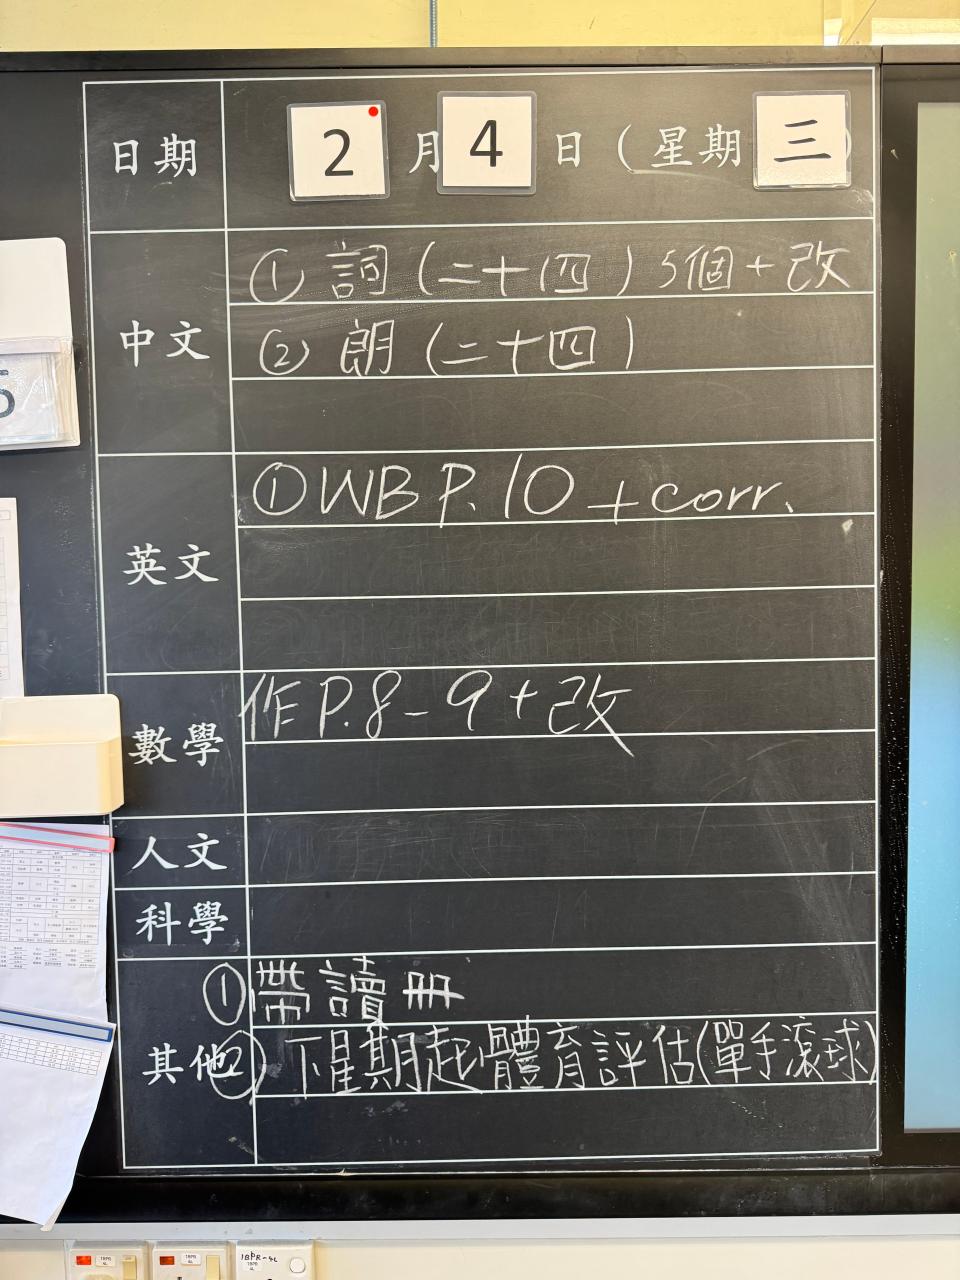 日期 2月4日(星期三)
中文
① 詞(二十四)5個+改
② 朗(二十四)
英文
① WB P.10 + corr.
數學
作 P.8-9+改
人文
科學
其他
① 帶讀冊
② 下星期起體育評估(單手滾球)
5
1BPR-4L